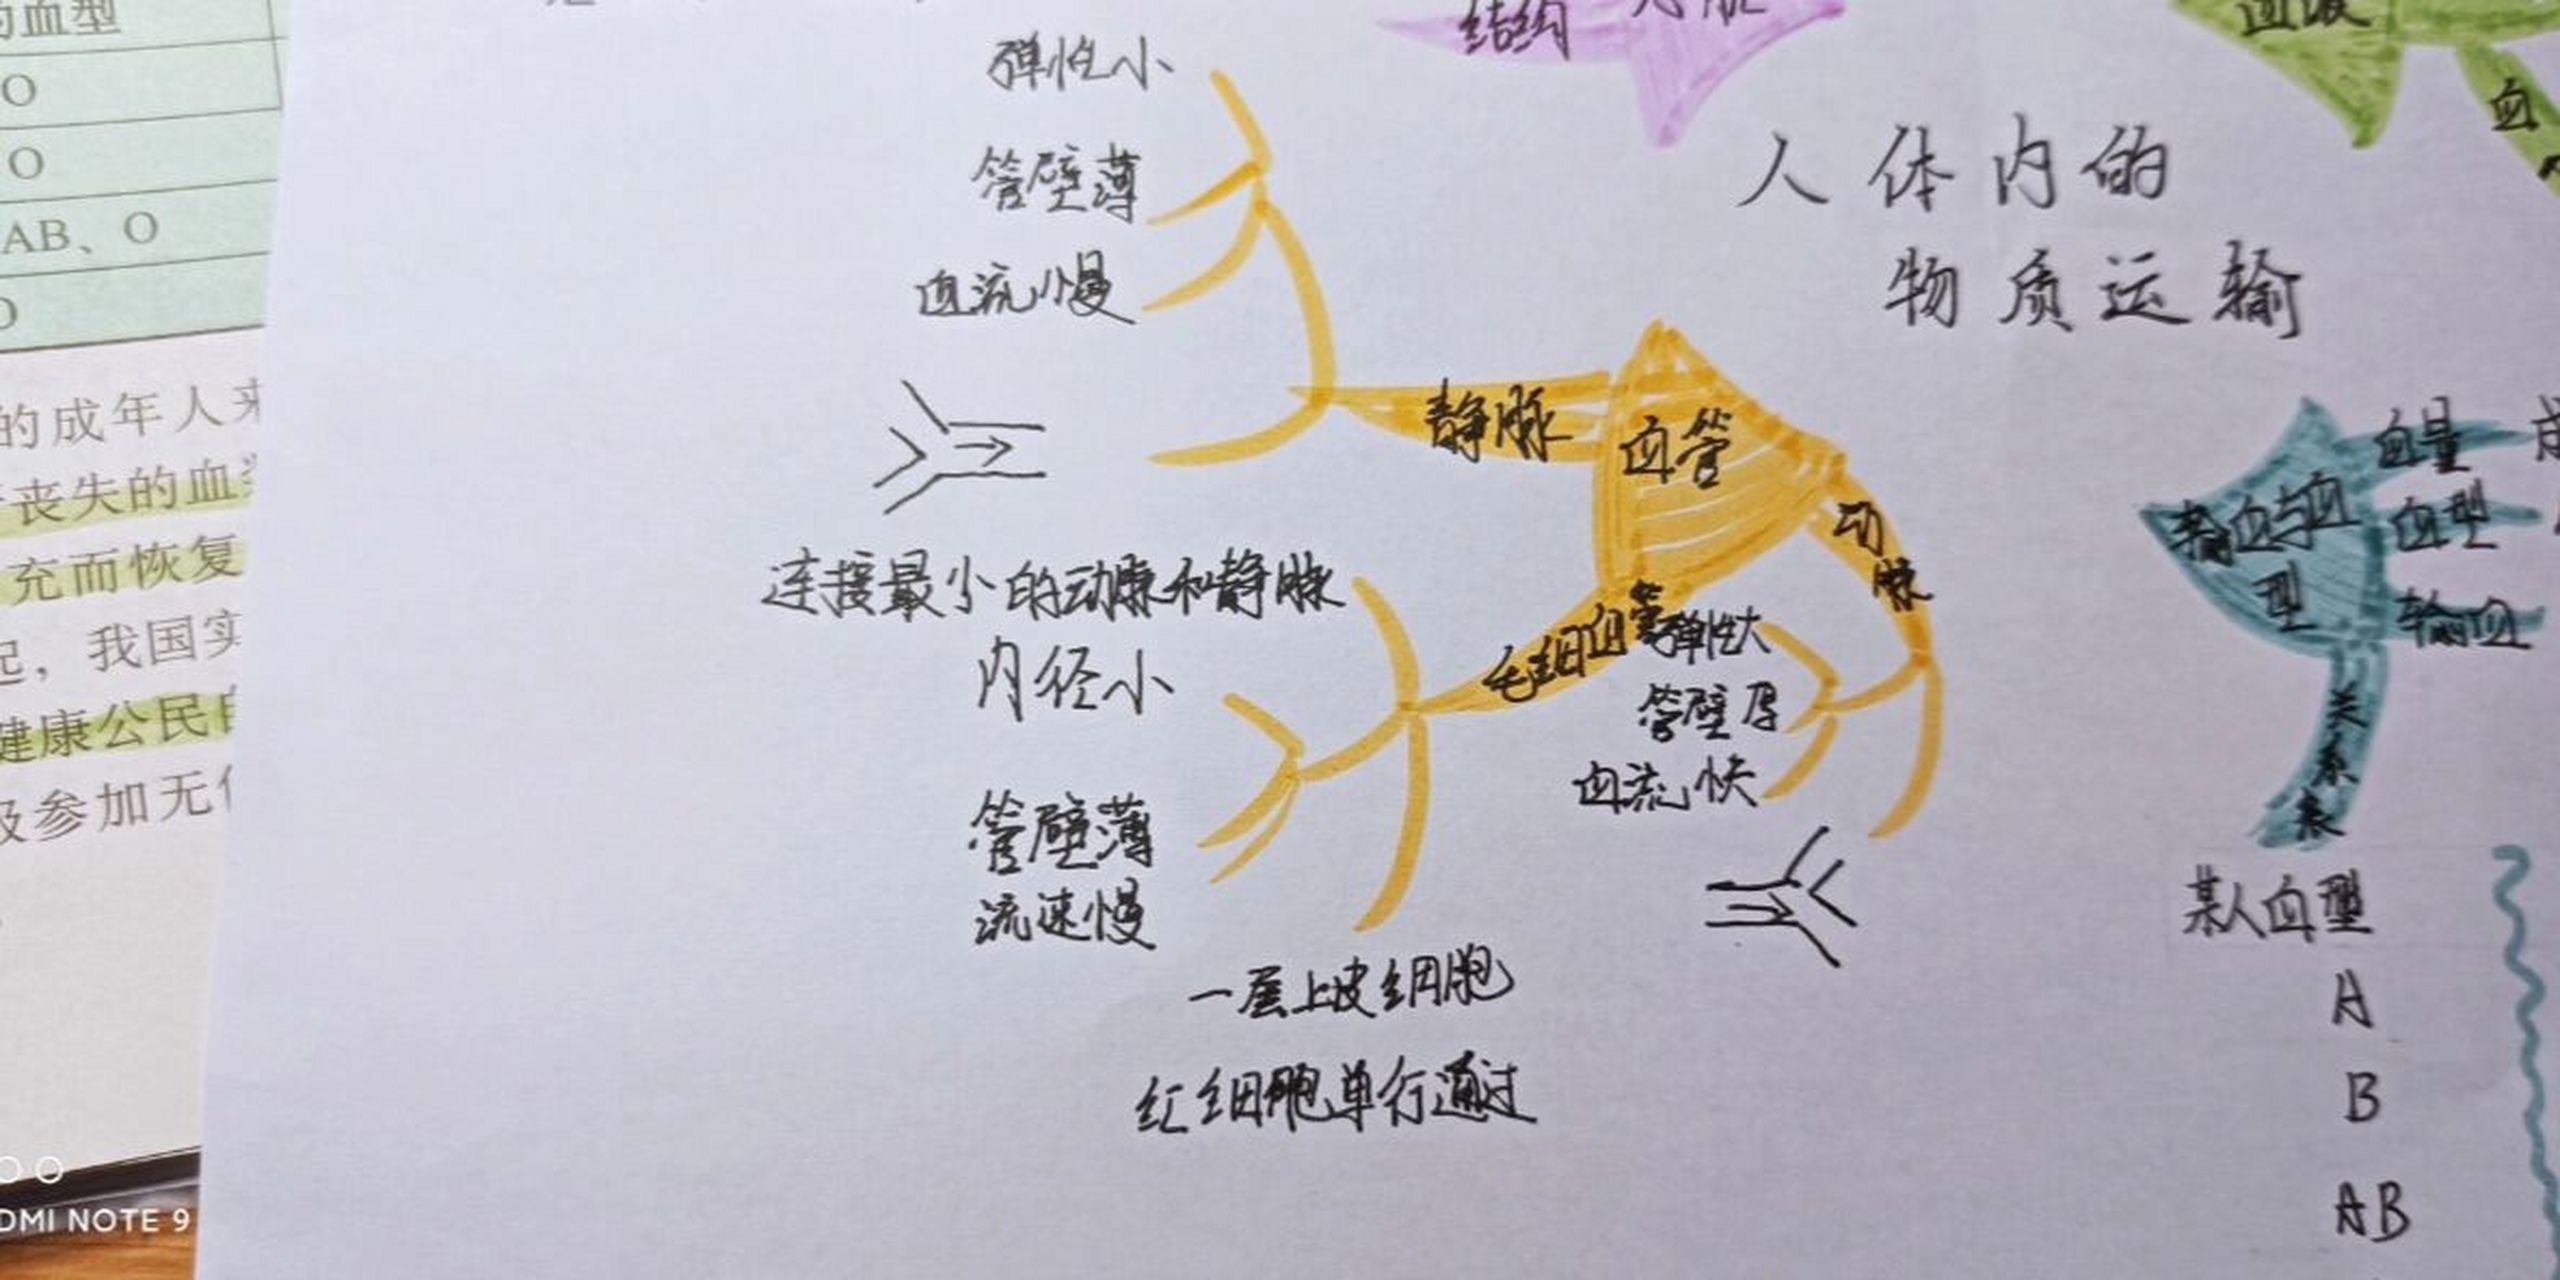 的血型
O
O
AB、O
O
的成年人来
丧失的血
充而恢复
起，我国实
健康公民自
及参加无
DMI NOTE 9
结构
人体内的
物质运输
弹性小
管壁薄
血流慢
静脉
血管
动脉
连接最小的动脉和静脉
内径小
管壁薄
流速慢
毛细血管
一层上皮细胞
红细胞单行通过
弹性大
管壁厚
血流快
血液
血
输血与血型
血量
血型
输血
关系表
某人血型
A
B
AB